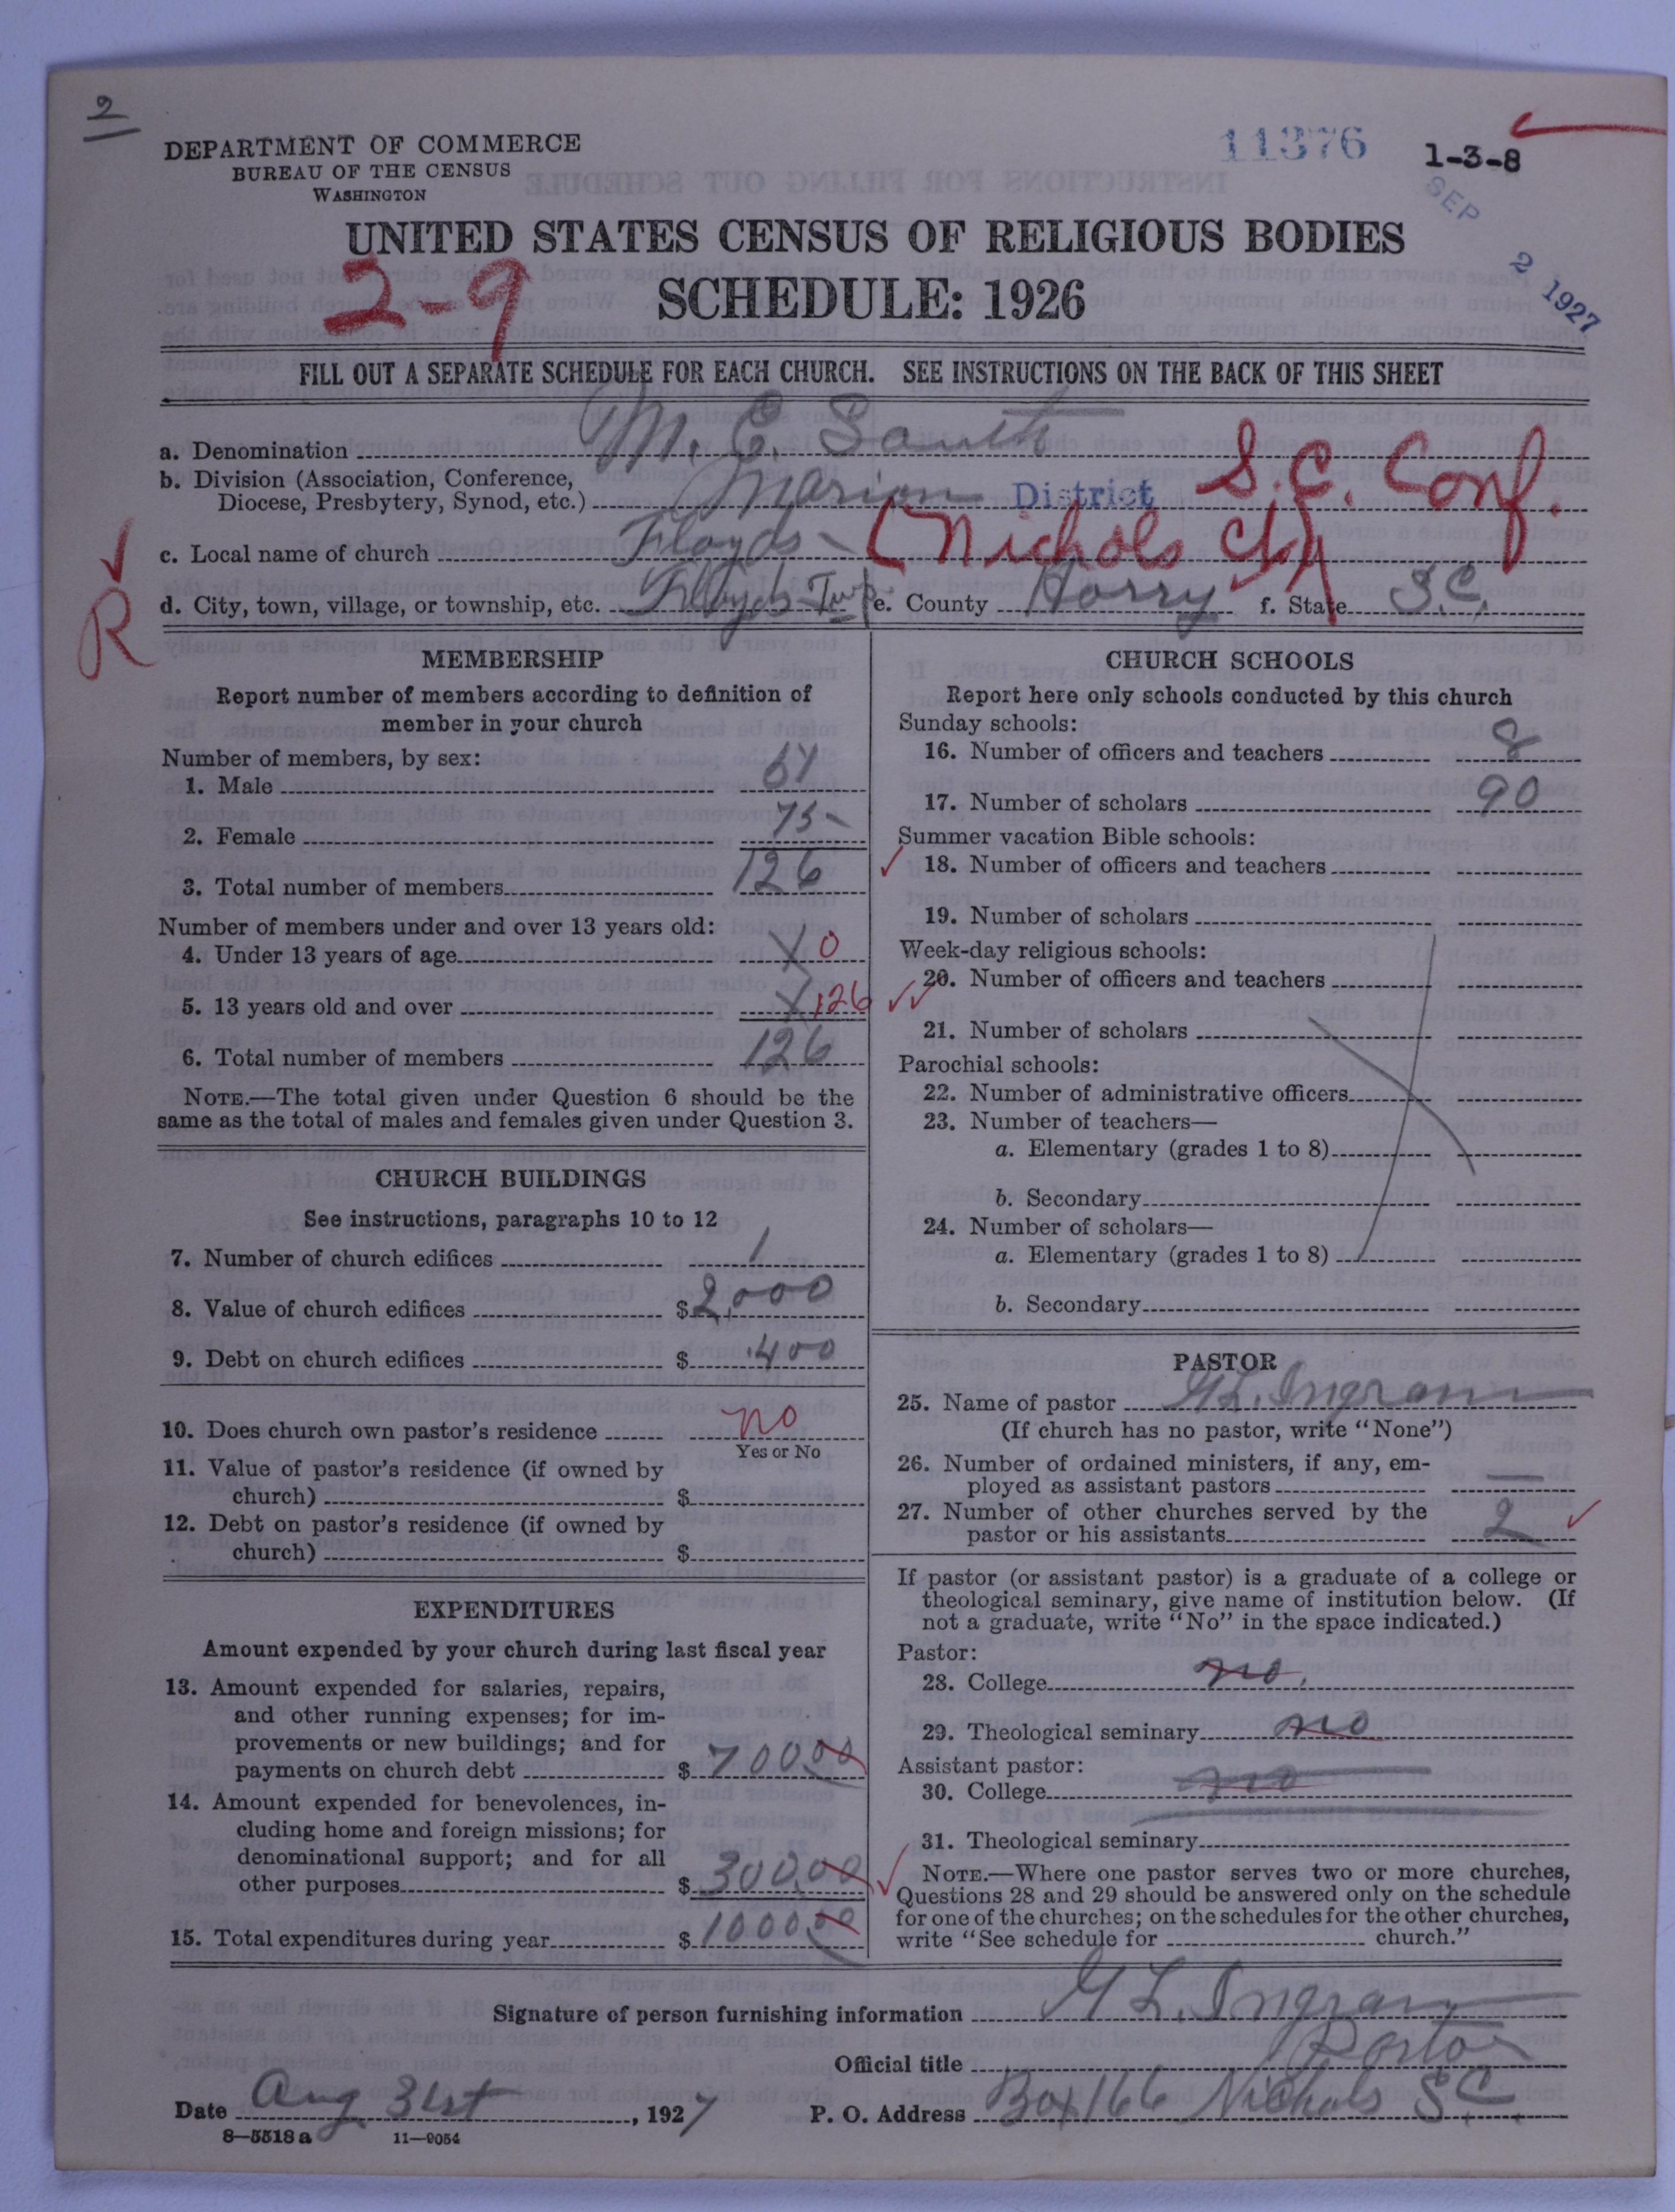 2
DEPARTMENT OF COMMERCE
BUREAU OF THE CENSUS
WASHINGTON
11376
1-3-8
SEP 2 1927
UNITED STATES CENSUS OF RELIGIOUS BODIES
2-9
SCHEDULE: 1926
FILL OUT A SEPARATE SCHEDULE FOR EACH CHURCH. SEE INSTRUCTIONS ON THE BACK OF THIS SHEET
a. Denomination M. E. South
b. Division (Association, Conference,
Diocese, Presbytery, Synod, etc.) Marion District S.C. Conf.
c. Local name of church Floyds (Nichols
R
d. City, town, village, or township, etc. Floyds Twp e. County Horry f. State S.C.
MEMBERSHIP
Report number of members according to definition of
member in your church
Number of members, by sex:
1. Male
2. Female 75
3. Total number of members 126
Number of members under and over 13 years old:
4. Under 13 years of age X 0
5. 13 years old and over X 126
6. Total number of members 126
NOTE.—The total given under Question 6 should be the
same as the total of males and females given under Question 3.
CHURCH BUILDINGS
See instructions, paragraphs 10 to 12
7. Number of church edifices 1
8. Value of church edifices $2,000
9. Debt on church edifices $ 400
10. Does church own pastor's residence no
Yes or No
11. Value of pastor's residence (if owned by
church) $
12. Debt on pastor's residence (if owned by
church) $
EXPENDITURES
Amount expended by your church during last fiscal year
13. Amount expended for salaries, repairs,
and other running expenses; for im-
provements or new buildings; and for
payments on church debt $ 700.00
14. Amount expended for benevolences, in-
cluding home and foreign missions; for
denominational support; and for all
other purposes $ 300.00
15. Total expenditures during year $ 1000.00
CHURCH SCHOOLS
Report here only schools conducted by this church
Sunday schools:
16. Number of officers and teachers 8
17. Number of scholars 90
Summer vacation Bible schools:
18. Number of officers and teachers
19. Number of scholars
Week-day religious schools:
20. Number of officers and teachers
21. Number of scholars
Parochial schools:
22. Number of administrative officers
23. Number of teachers—
a. Elementary (grades 1 to 8)
b. Secondary
24. Number of scholars—
a. Elementary (grades 1 to 8)
b. Secondary
PASTOR
25. Name of pastor G L. Ingram
(If church has no pastor, write "None")
26. Number of ordained ministers, if any, em-
ployed as assistant pastors —
27. Number of other churches served by the
pastor or his assistants 2
If pastor (or assistant pastor) is a graduate of a college or
theological seminary, give name of institution below. (If
not a graduate, write "No" in the space indicated.)
Pastor:
28. College no.
29. Theological seminary no
Assistant pastor:
30. College no
31. Theological seminary
NOTE.—Where one pastor serves two or more churches,
Questions 28 and 29 should be answered only on the schedule
for one of the churches; on the schedules for the other churches,
write "See schedule for church."
Signature of person furnishing information G L. Ingram
Official title Pastor
Date Aug 31st, 1927 P. O. Address Box 166 Nichols S C
8—5518 a 11—9054